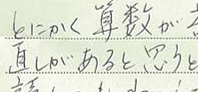 とにかく算数が
直しがあると思うと